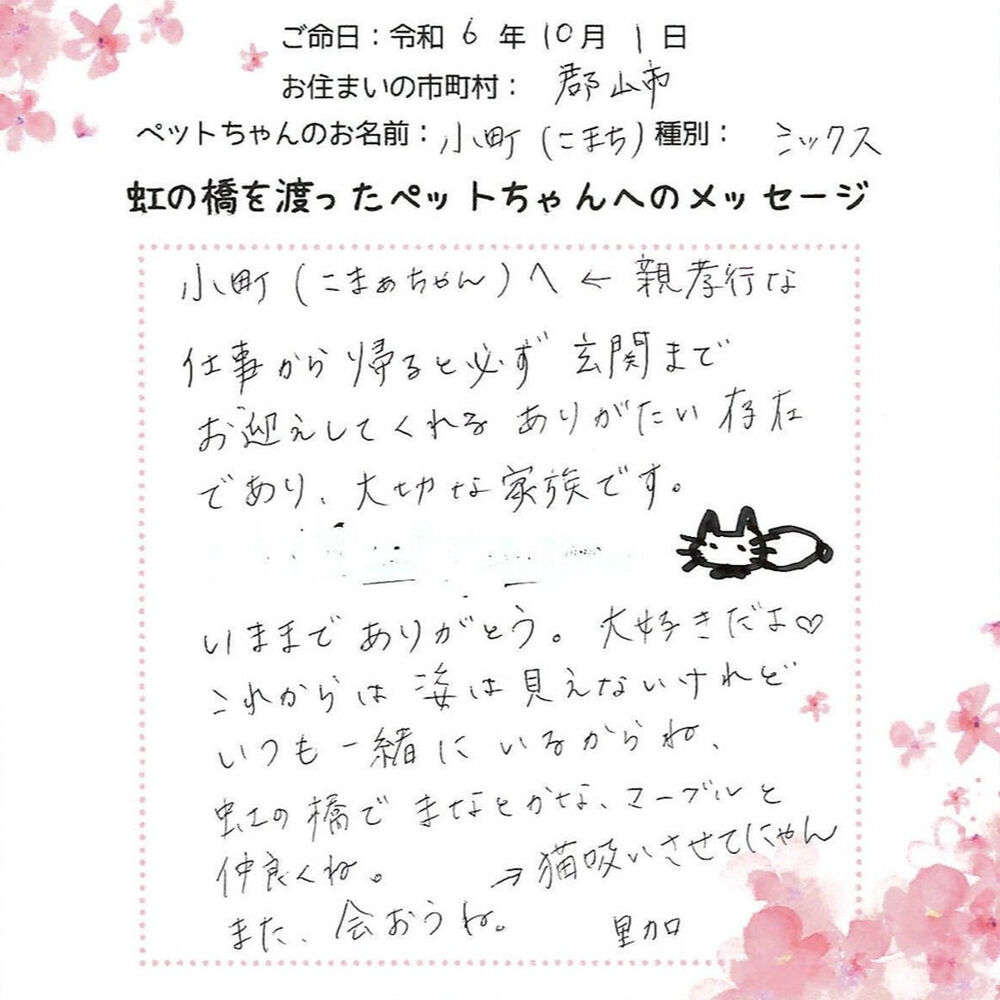 ご命日：令和 6 年 10月 1 日
お住まいの市町村： 郡山市
ペットちゃんのお名前：小町（こまち）種別： ミックス
虹の橋を渡ったペットちゃんへのメッセージ
小町（こまぁちゃん）へ ← 親孝行な
仕事から帰ると必ず 玄関まで
お迎えしてくれる ありがたい 存在
であり、大切な家族です。
いままでありがとう。大好きだよ♡
これからは 姿は見えないけれど
いつも一緒にいるからね、
虹の橋で まなとかな、マーブルと
仲良くね。
→ 猫吸いさせてにゃん
また、会おうね。 里加